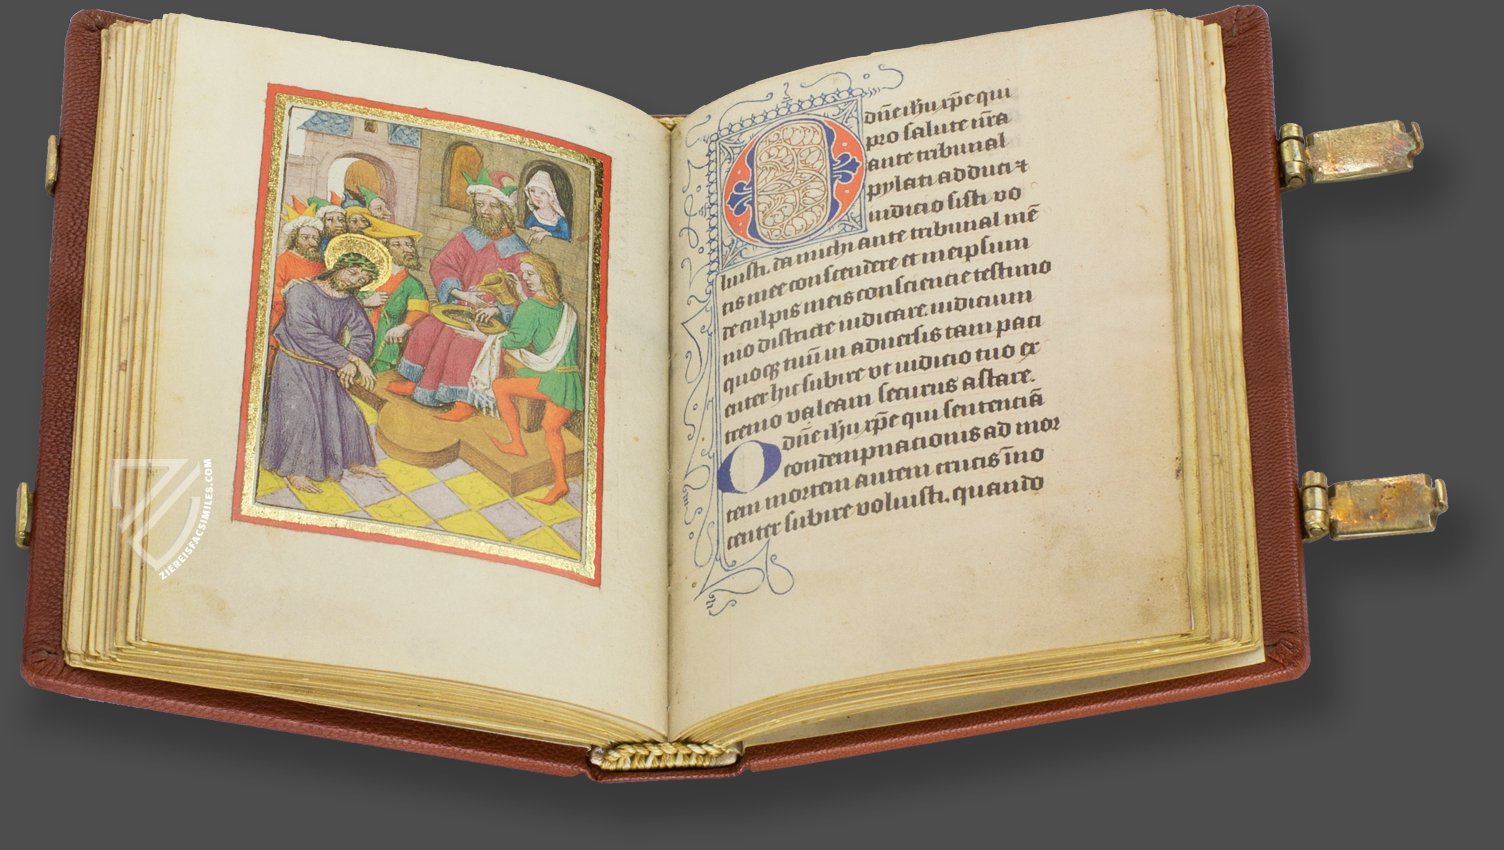 O dn̄e ihu xp̄e qui
pro salute nr̄a
ante tribunal
pylati adduci ⁊
iudicio sisti vo
luisti. da michi ante tribunal mē
tis mee conscendere et meipsum
de culpis meis consciencie testimo
nio districte iudicare. iudicium
quoqꝫ tuū in aduersis tam paci
enter hic subire vt iudicio tuo ex
tremo valeam securus astare.
O dn̄e ihu xp̄e qui sentenciā
condempnacionis ad mor
tem mortem autem crucis īno
center subire voluisti. quando
ZIEREISFACSIMILES.COM